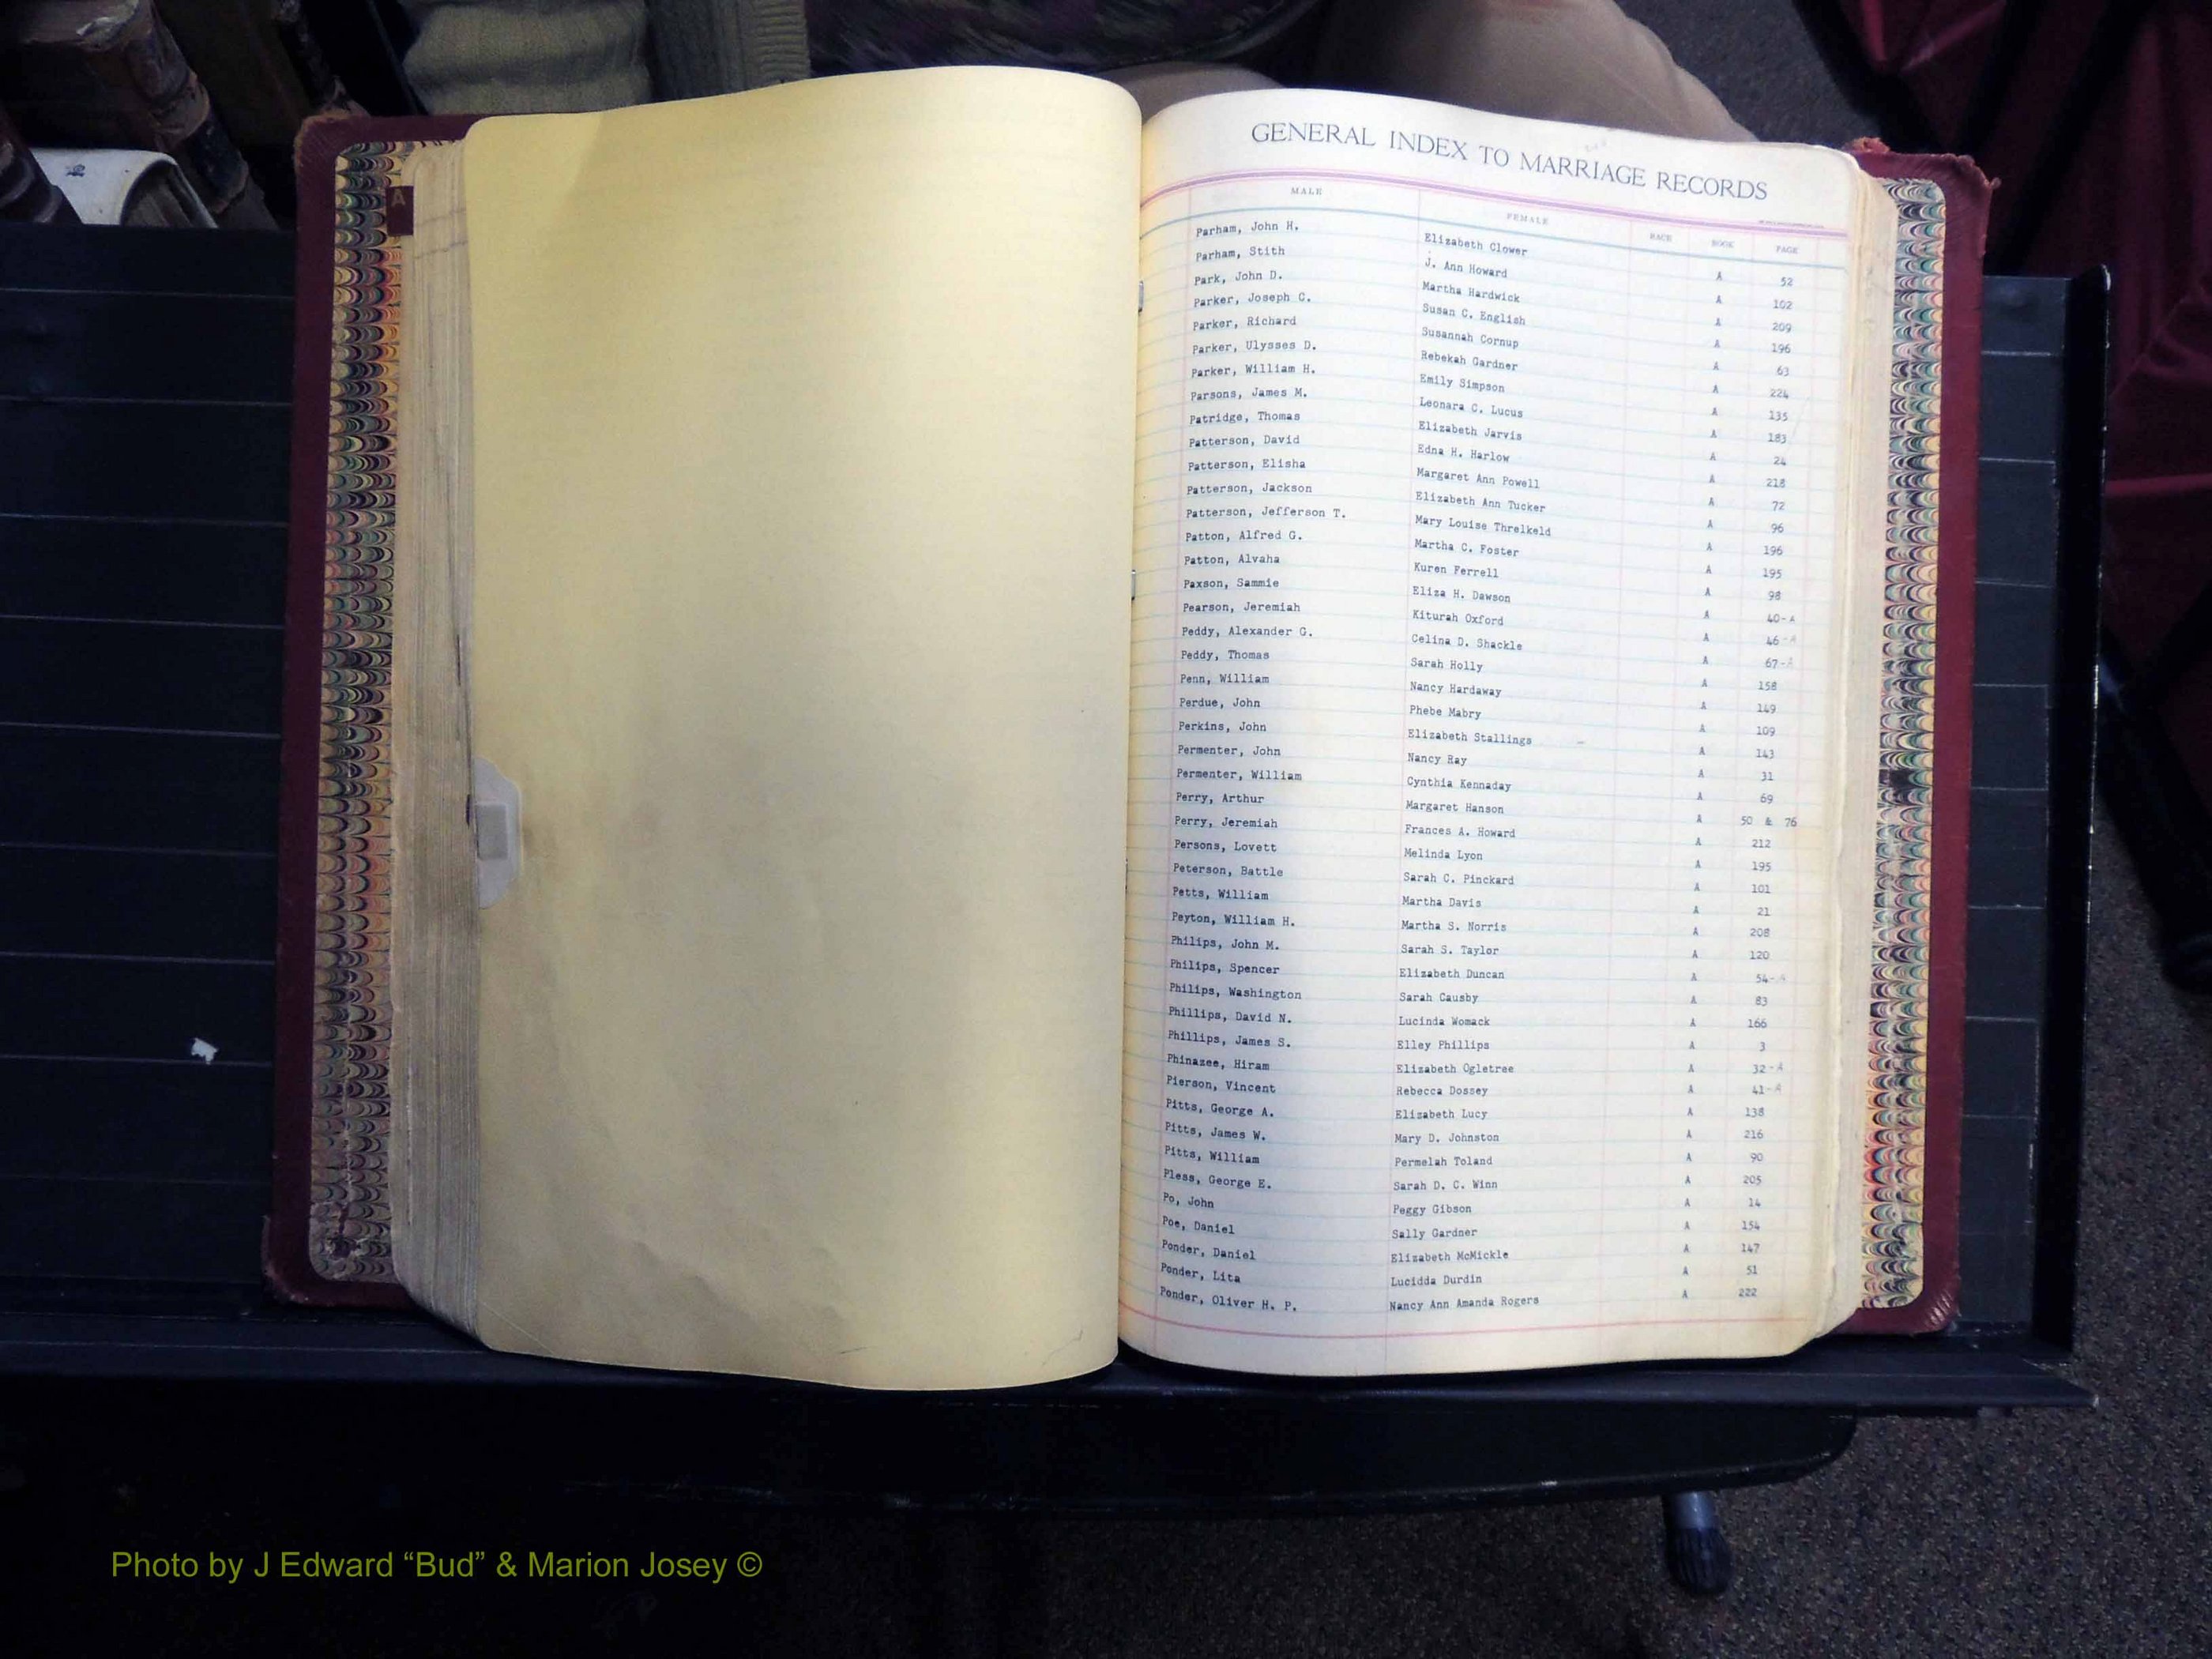 GENERAL INDEX TO MARRIAGE RECORDS
MALE FEMALE RACE BOOK PAGE
Parham, John H. Elizabeth Clower A 52
Parham, Stith J. Ann Howard A 102
Park, John D. Martha Hardwick A 209
Parker, Joseph C. Susan C. English A 196
Parker, Richard Susannah Cornup A 63
Parker, Ulysses D. Rebekah Gardner A 224
Parker, William H. Emily Simpson A 135
Parsons, James M. Leonara C. Lucus A 183
Patridge, Thomas Elizabeth Jarvis A 24
Patterson, David Edna H. Harlow A 218
Patterson, Elisha Margaret Ann Powell A 72
Patterson, Jackson Elizabeth Ann Tucker A 96
Patterson, Jefferson T. Mary Louise Threlkeld A 196
Patton, Alfred G. Martha C. Foster A 195
Patton, Alvaha Kuren Ferrell A 98
Paxson, Sammie Eliza H. Dawson A 40-A
Pearson, Jeremiah Kiturah Oxford A 46-A
Peddy, Alexander G. Celina D. Shackle A 67-A
Peddy, Thomas Sarah Holly A 158
Penn, William Nancy Hardaway A 149
Perdue, John Phebe Mabry A 109
Perkins, John Elizabeth Stallings A 143
Permenter, John Nancy Ray A 31
Permenter, William Cynthia Kennaday A 69
Perry, Arthur Margaret Hanson A 50 & 76
Perry, Jeremiah Frances A. Howard A 212
Persons, Lovett Melinda Lyon A 195
Peterson, Battle Sarah C. Pinckard A 101
Petts, William Martha Davis A 21
Peyton, William H. Martha S. Norris A 208
Philips, John M. Sarah S. Taylor A 120
Philips, Spencer Elizabeth Duncan A 54-A
Philips, Washington Sarah Causby A 83
Phillips, David N. Lucinda Womack A 166
Phillips, James S. Elley Phillips A 3
Phinazee, Hiram Elizabeth Ogletree A 32-A
Pierson, Vincent Rebecca Dossey A 41-A
Pitts, George A. Elizabeth Lucy A 138
Pitts, James W. Mary D. Johnston A 216
Pitts, William Permelah Toland A 90
Pless, George E. Sarah D. C. Winn A 205
Po, John Peggy Gibson A 14
Poe, Daniel Sally Gardner A 154
Ponder, Daniel Elizabeth McMickle A 147
Ponder, Lita Lucidda Durdin A 51
Ponder, Oliver H. P. Nancy Ann Amanda Rogers A 222
A
Photo by J Edward “Bud” & Marion Josey ©